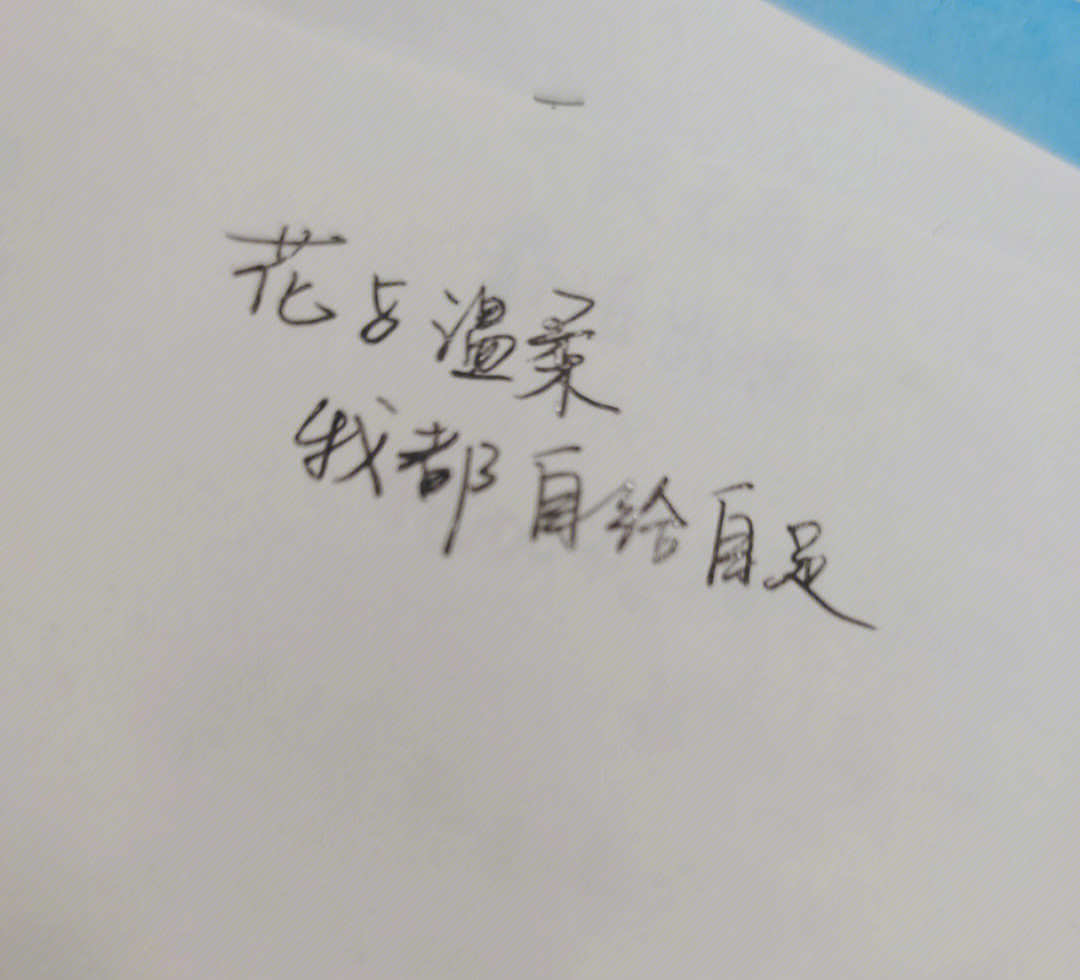 花与温柔
我都自给自足